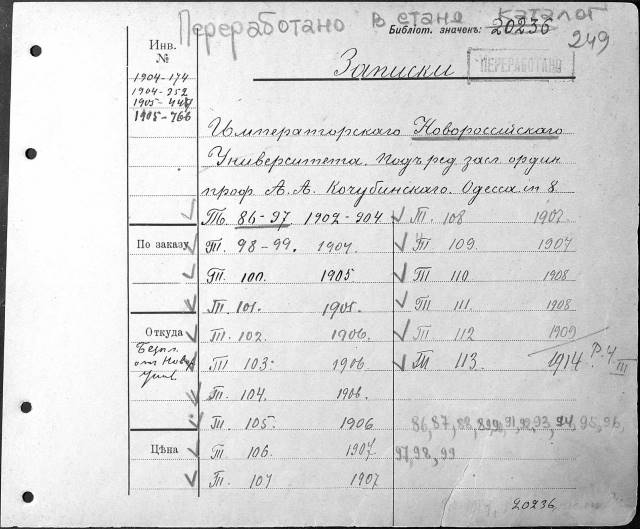 Переработано в стана каталог
Библіот. значекъ: 20236
249
Инв.
№
ПЕРЕРАБОТАНО
Записки
1904-174
1904-252
1905-447
1905-766
Императорскаго Новороссійскаго
Университета. Подъ ред. засл. ордин.
проф. А. А. Кочубинскаго. Одесса. in 8.
Тт. 86-97 1902-904
Т. 98-99. 1904.
Т. 100. 1905
Т. 101. 1905.
Т. 102. 1906.
Т. 103. 1906
Т. 104. 1906.
Т. 105. 1906
Т. 106. 1907.
Т. 107 1907
Т. 108 1907.
Т. 109. 1907
Т. 110 1908
Т. 111. 1908
Т. 112 1909
Т. 113. 1914
Р.Ч
III
По заказу
Откуда
Безпл.
отъ Ново
Унив.
Цѣна
86, 87, 88, 89, 90, 91, 92, 93, 94, 95, 96,
97, 98, 99
20236